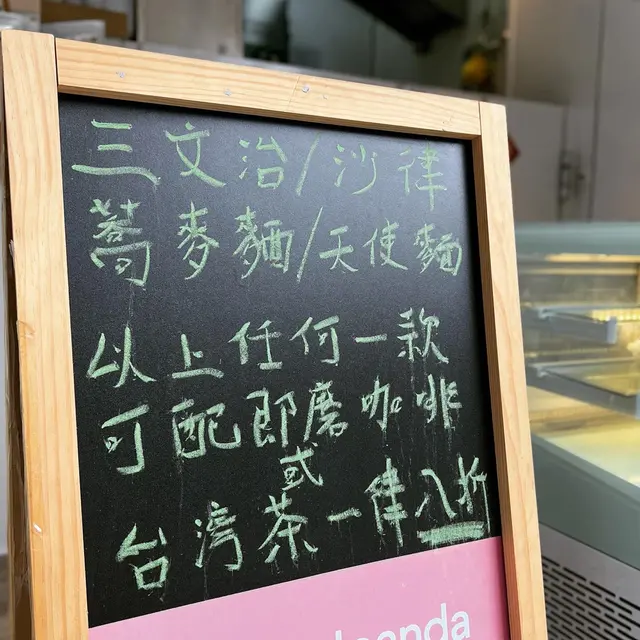 三文治/沙律
蕎麥麵/天使麵
以上任何一款
可配即席咖啡
或
台灣茶一律八折